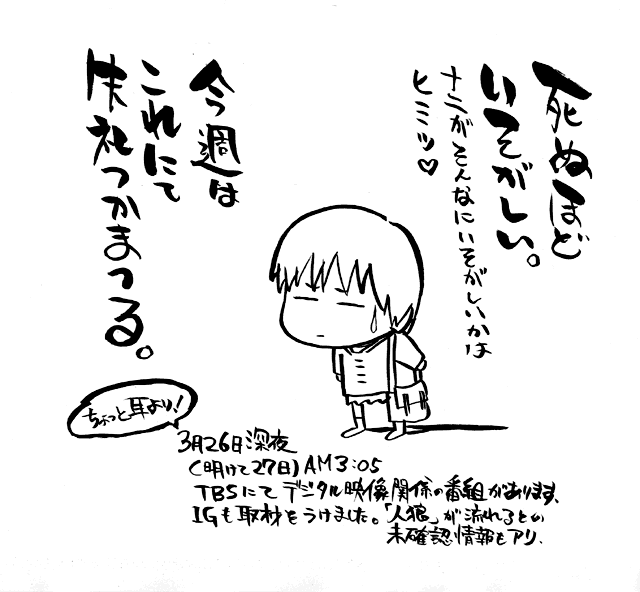 死ぬほど
いそがしい。
ナニがそんなにいそがしいかは
ヒミツ♡
今週は
これにて
失礼つかまつる。
ちょっと耳より!
3月26日深夜
(明けて27日)AM3:05
TBSにてデジタル映像関係の番組があります。
IGも取材をうけました。「人狼」が流れるとの
未確認情報もアリ.